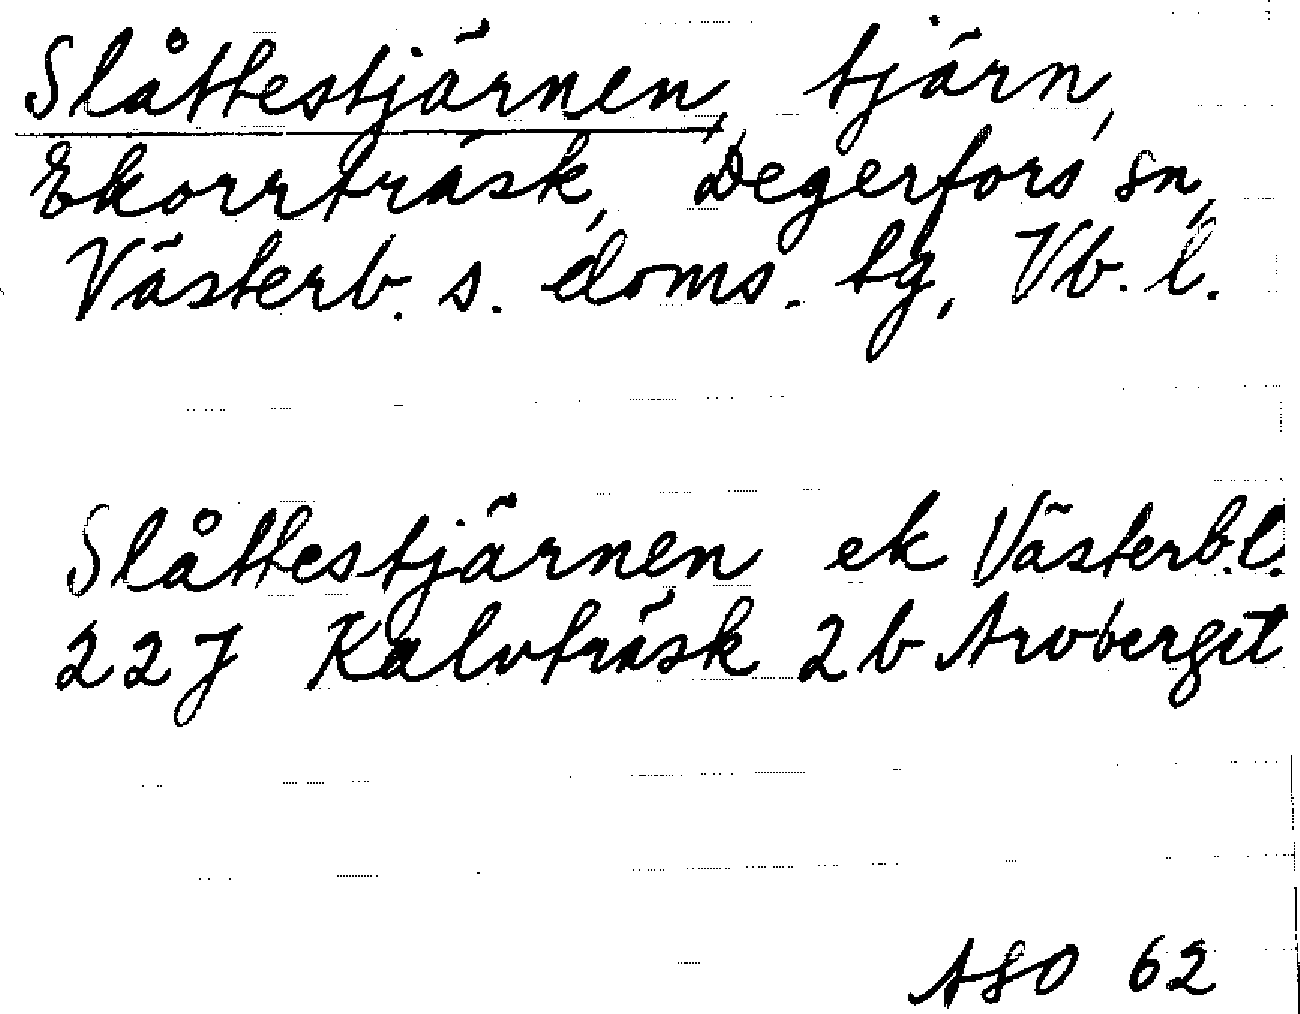 Slåttestjärnen, tjärn,
Ekorrträsk, Degerfors sn,
Västerb. s. doms. tg, Vb. l.
Slåttestjärnen ek Västerb.l.
22J Kalvträsk 2b Arvberget
ASO 62